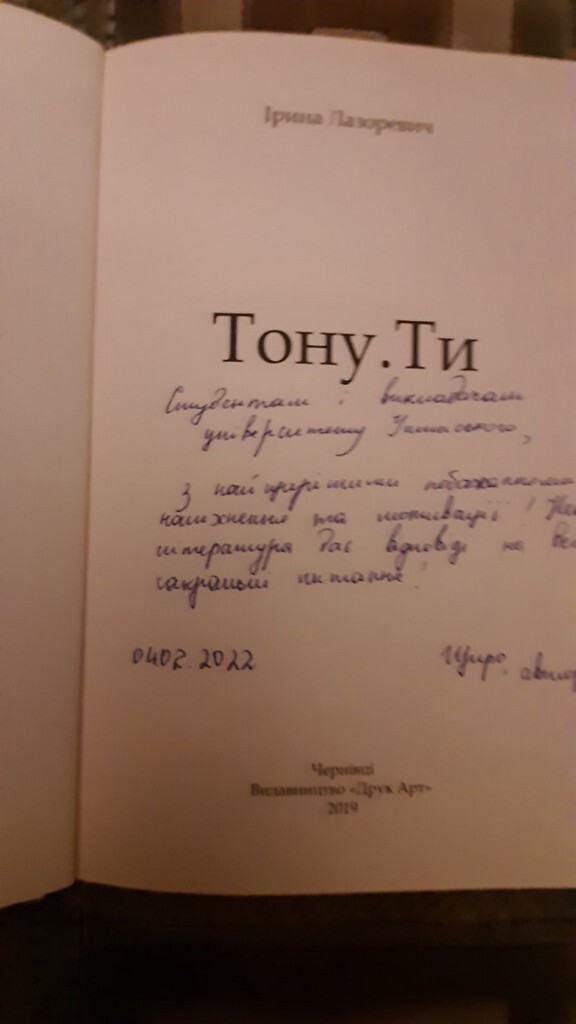 Ірина Лазоревич
Тону.Ти
Студентам і викладачам
університету Ушинського,
з найщирішими побажаннями
натхнення та мотивації!
література дає відповіді на
сакральні питання!
04.02.2022
Щиро,
Чернівці
Видавництво «Друк Арт»
2019